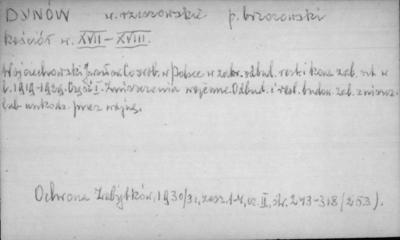 DYNÓW w. rzeszowskie p. brzozowski
Kościół w. XVII – XVIII.
Wojciechowski Jarosław Co zrob. w Polsce w zakr. odbud. rest. i kons. zab. szt. w
l. 1919-1929. Część I. Zniszczenia wojenne. Odbud. i rest. budow. zab. zniszcz.
lub uszkodz. przez wojnę.
Ochrona Zabytków, 1930/31, zesz. 1-4, cz. II, str. 243-318 (253).